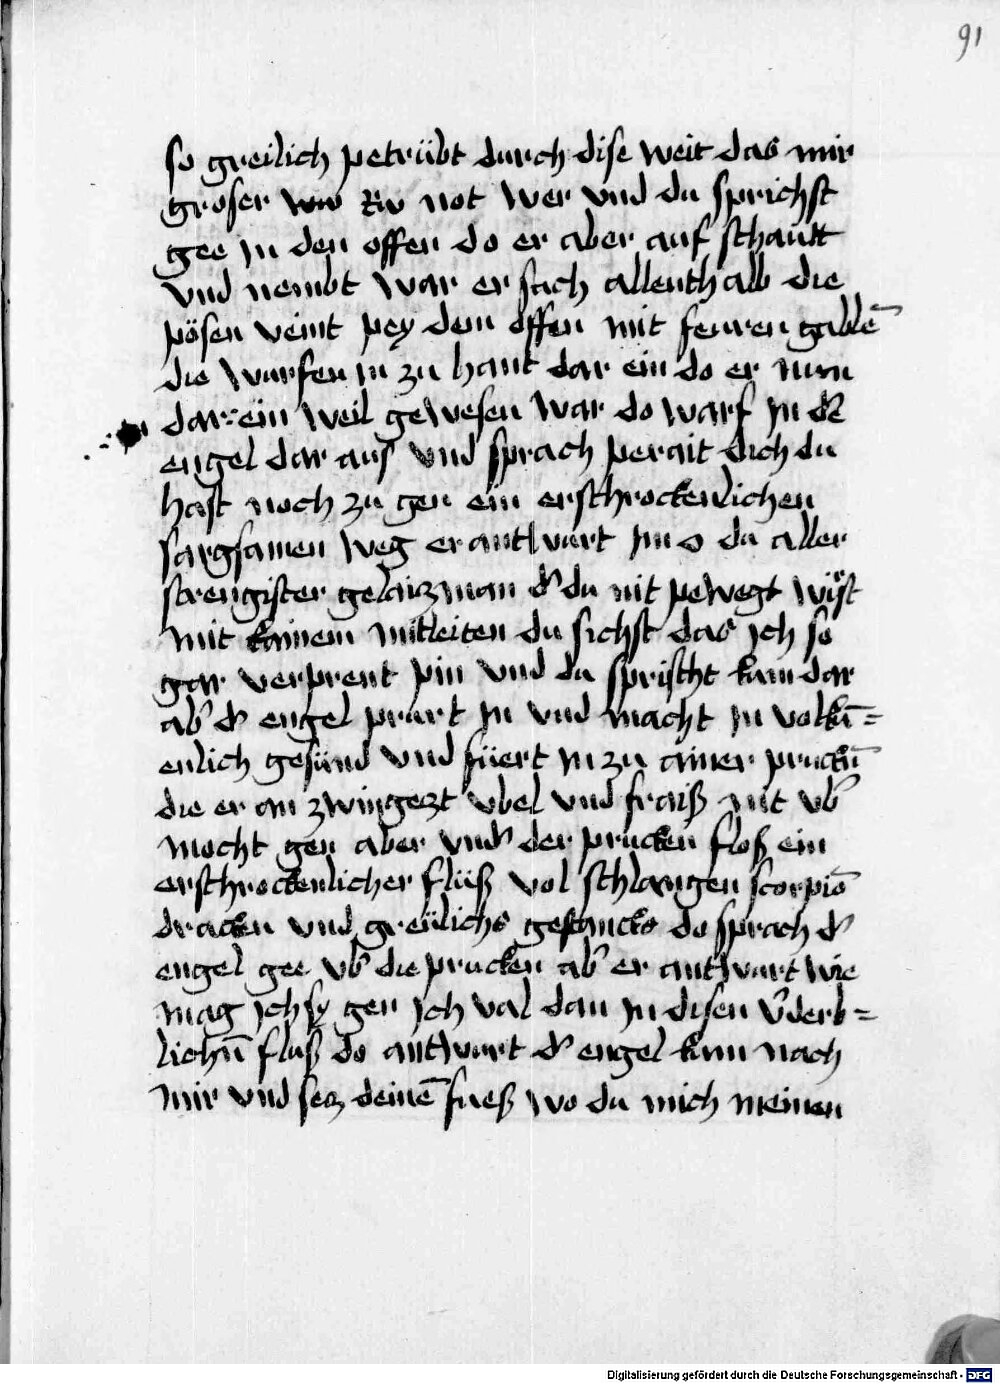 91
so greilich petrübt durch dise weit das mir
groser rw not wer und du sprichst
gee in den offen do er aber auf schautt
vnd nembt war er sach allenthalb die
pösen veint pey dem offen mit feuren gablē
die wurfen in zu hant dar ein do er nun
dar ein weil gewesen war do warf in dˀ
engel dar aus vnd sprach perait dich du
hast noch zu gen ein erschrockenlichen
sargsamen weg er antwurt im o du aller
strengister gelaizman dˀ du nit pewegt wÿst
mit kainem mitleiten du sichst das ich so
gar verprent pin vnd du sprischt kum dar
abˀ dˀ engel prürt in vnd macht in volkū=
enlich gesünd vnd füert in zu ainer pruckn̄
die er an zwingezt vbel vnd fraiß nit vbˀ
mocht gen aber vndˀ der prucken floß ein
erschrockenlicher flüß vol schlangen scorpiō
dracken vnd greülichs gestancks do sprach dˀ
engel gee vbˀ die prucken abˀ er antwurt wie
mag ich sy gen ich val dan in disen vˀderb=
lichn̄ fluß do antwurt dˀ engel kum nach
mir vnd sez deinē fueß wo du mich meinen
Digitalisierung gefördert durch die Deutsche Forschungsgemeinschaft - DFG